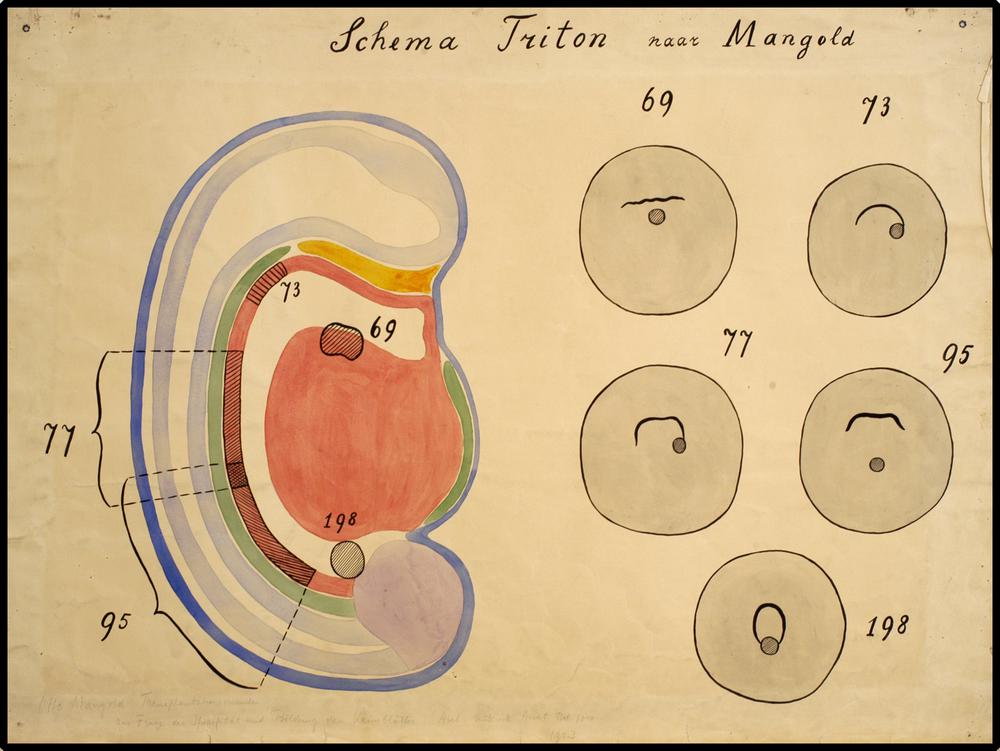 Schema Triton naar Mangold
69
73
73
69
77
77
95
198
95
198
Otto Mangold Transplantationsversuche
zur Frage der Spezifität und Bildung der Keimblätter